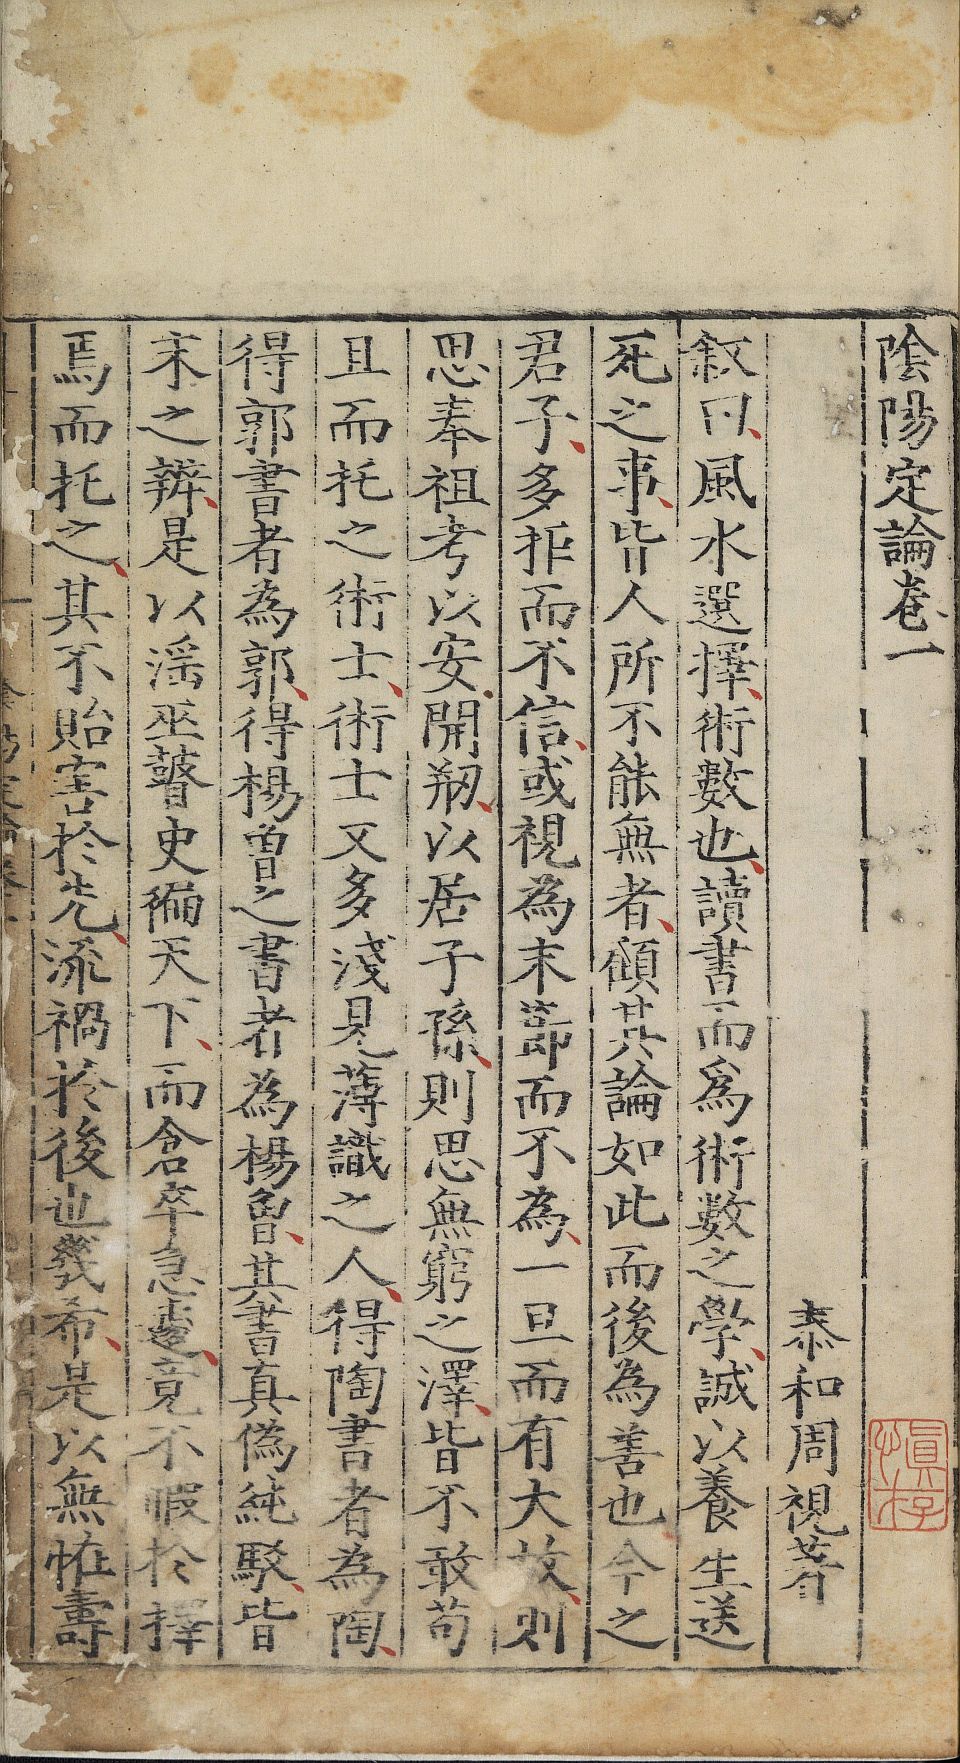 陰陽定論卷一
泰和周視著
叙曰風水選擇術數也讀書而爲術數之學誠以養生送
死之事皆人所不能無者顧其論如此而後為善也今之
君子多拒而不信或視為末節而不為一旦而有大故則
思奉祖考以安開剏以居子孫則思無窮之澤皆不敢苟
且而托之術士術士又多淺見薄識之人得陶書者為陶
得郭書者為郭得楊曾之書者為楊曾其書真偽純駁皆
未之辨是以滛巫瞽史徧天下而倉卒急遽竟不暇於擇
焉而托之其不貽害於先流禍於後也幾希是以無恠壽